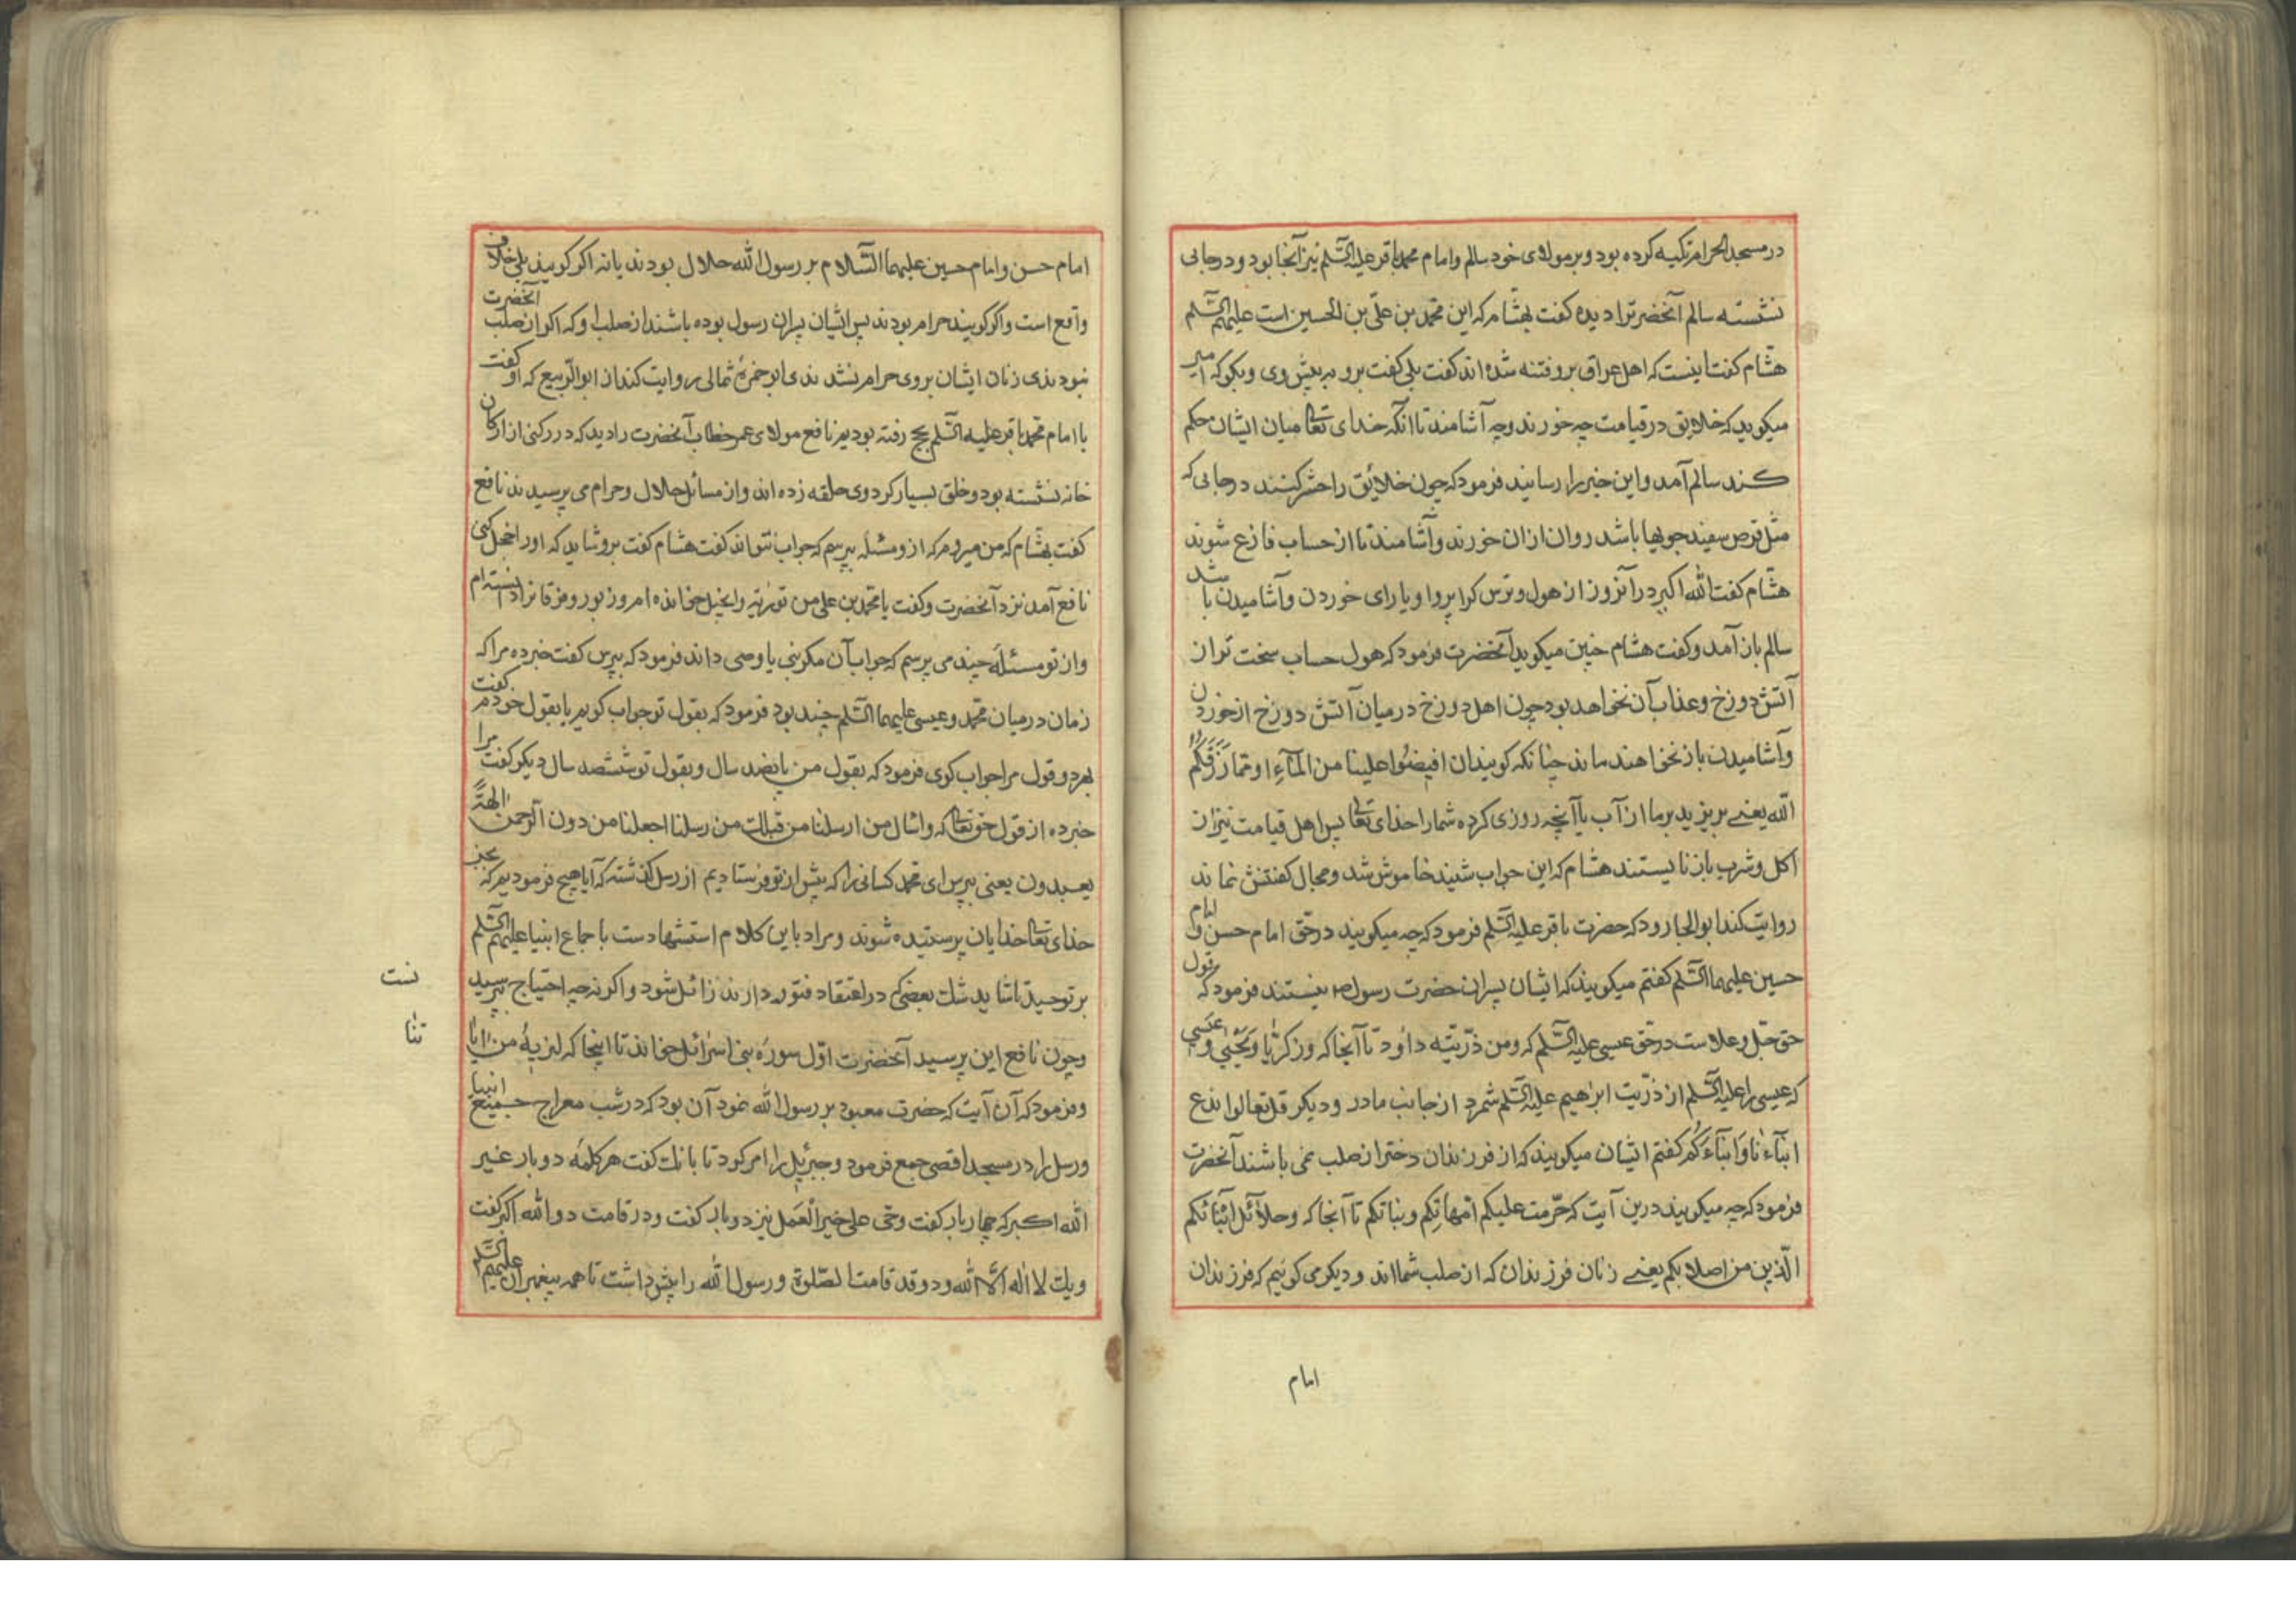 در مسجد الحرام تکیه کرده بود و بر مولای خود سالم و امام محمد باقر علیه السّلم نیز آنجا بود و در جایی
نشسته سالم آنحضرترا دیده کفت بهشام که این محمّد بن علیّ بن الحسین است علیهم السّلم
هشام کفت اینست که اهل عراق برو فتنه شده اند کفت بلی کفت برو به پیش وی و بکو که امیر
میکوید که خلایق در قیامت چه خورند و چه آشامند تا آنکه خدای تعالی میان ایشان حکم
کند سالم آمد و این خبر را رسانید فرمود که چون خلائق را حشر کنند در جایی که
مثل قرص سفید جویها باشد روان ازان خورند و آشامند تا از حساب فارغ شوند
هشام کفت الله اکبر در آنروز از هول و ترس کرا پروا و یارای خوردن و آشامیدن باشد
سالم باز آمد و کفت هشام چنین میکوید آنحضرت فرمود که هول حساب سخت تر از
آتش دوزخ و عذاب آن نخواهد بود چون اهل دوزخ در میان آتش دوزخ از خوردن
و آشامیدن باز نخواهند ماند چنانکه کویند ان افیضوا علینا من المآءِ او ممّا رَزَقَکُم
الله یعنے بریزید بر ما از آب یا آنچه روزی کرده شما را خدای تعالی پس اهل قیامت نیز از
اکل و شرب باز نایستند هشام که این جواب شنید خاموش شد و مجال کفتنش نماند
روایت کند ابو الجارود که حضرت باقر علیه السّلم فرمود که چه میکویند در حقّ امام حسن و امام
حسین علیهما السّلم کفتم میکویند که ایشان پسران حضرت رسول ص نیستند فرمود که قول
حق جلّ و علاست در حقّ عیسی علیه السّلم که ومن ذرّیّته داود تا آنجا که وزکریّا ویَحْیٰی وعِیسی
که عیسی را علیه السّلم از ذرّیت ابرٰهیم علیه السّلم شمرد از جانب مادر و دیکر قل تعالوا ندع
ابنآءَنا وَابنآءَکُم کفتم ایشان میکویند که از فرزندان دختر از صلب نمی باشند آنحضرت
فرمود که چه میکویند درین آیت که حرّمت علیکم امّهاتکم وبناتکم تا آنجا که وحلآئل ابنائکم
الّذین من اصلابکم یعنے زنان فرزندان که از صلب شما اند و دیکر می کوئیم که فرزندان
امام
امام حسن و امام حسین علیهما السّلام بر رسول الله حلال بودند یا نه اکر کویند بلی خلاف
واقع است و اکر کویند حرام بودند پس ایشان پسران رسول بوده باشند از صلب او که اکر از صلب آنحضرت
نبودندی زنان ایشان بروی حرام نشدندی ابو حمزهٔ ثمالی روایت کند از ابو الرّبیع که او کفت
با امام محمّد باقر علیه السّلم بحج رفته بودیم نافع مولای عمر خطاب آنحضرت را دید که در رکنی از ارکان
خانه نشسته بود و خلق بسیار کرد وی حلقه زده اند و از مسائل حلال و حرام می پرسیدند نافع
کفت بهشام که من میروم که ازو مسئله بپرسم که جواب نتواند کفت هشام کفت برو شاید که اورا خجل کنی
نافع آمد نزد آنحضرت و کفت یا محمّد بن علی من تورٰیة و انجیل خوانده ام و زبور و فرقانرا دانسته ام
و از تو مسئلهٔ چند می پرسم که جواب آن مکر نبی یا وصی داند فرمود که بپرس کفت خبر ده مرا که
زمان در میان محمّد و عیسی علیهما السّلم چند بود فرمود که بقول تو جواب کویم یا بقول خودم کفت
بهر دو قول مرا جواب کوی فرمود که بقول من پانصد سال و بقول تو ششصد سال دیکر کفت مرا
خبر ده از قول حق تعالی که واسال من ارسلنا من قبلک من رسلنا اجعلنا من دون الرحمن الهةً
یعبدون یعنی بپرس ای محمّد کسانی را که پیش از تو فرستادیم از رسل کذشته که آیا هیچ فرمودیم که بجز
خدای تعالی خدایان پرستیده شوند و مراد باین کلام استشهادست باجماع انبیا علیهم السّلم
بر توحید تا شاید شک بعضی که در اعتقاد فتور دارند زائل شود و اکر نه چه احتیاج بپرسید نست
و چون نافع این پرسید آنحضرت اوّل سورهٔ بنی اسرائیل خواند تا اینجا که لنریهُ من ایاتنا
و فرمود که آن آیت که حضرت معبود بر رسول الله نمود آن بود که در شب معراج جمیع انبیا
و رسل را در مسجد اقصی جمع فرمود و جبرئیل را امر کرد تا بانک کفت هر کلمهٔ دو بار غیر
الله اکبر که چهار بار کفت و حی علی خیر الْعَمل نیز دو بار کفت و در قامت دو الله اکبر کفت
و یک لا اله الّا الله و دو قد قامت الصّلوة و رسول الله را پیش داشت تا همه پیغمبران علیهم السّلم